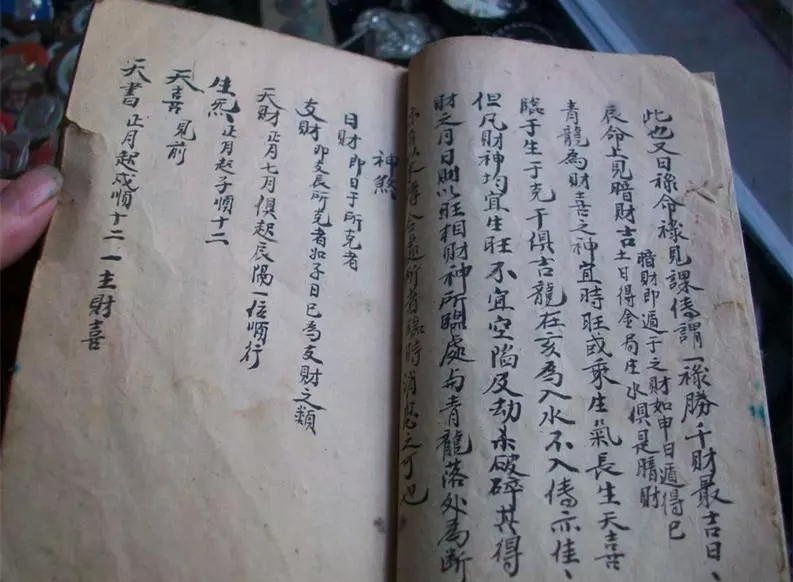 此也又曰祿命祿見課傳謂一祿勝千財最吉日、
辰命上見暗財吉
暗財即遁干之財如申日遁得巳
土日得金局庄水俱是暗財
青龍為財喜之神宜時旺或乘生氣長生天喜
臨于生于克干俱吉龍在亥為入水不入傳亦佳、
但凡財神均宜生旺不宜空陷及劫杀破碎其得
財之月日則以旺相財神所臨處与青龍落处為斷
合 所 臨時消息之可也
神煞
日財 即日干所克者
支財 即支辰所克者如子日巳為支財之類
天財 正月七月俱起辰陽一位順行
生炁 正月起子順十二
天喜 見前
天書 正月起戌順十二 一主財喜